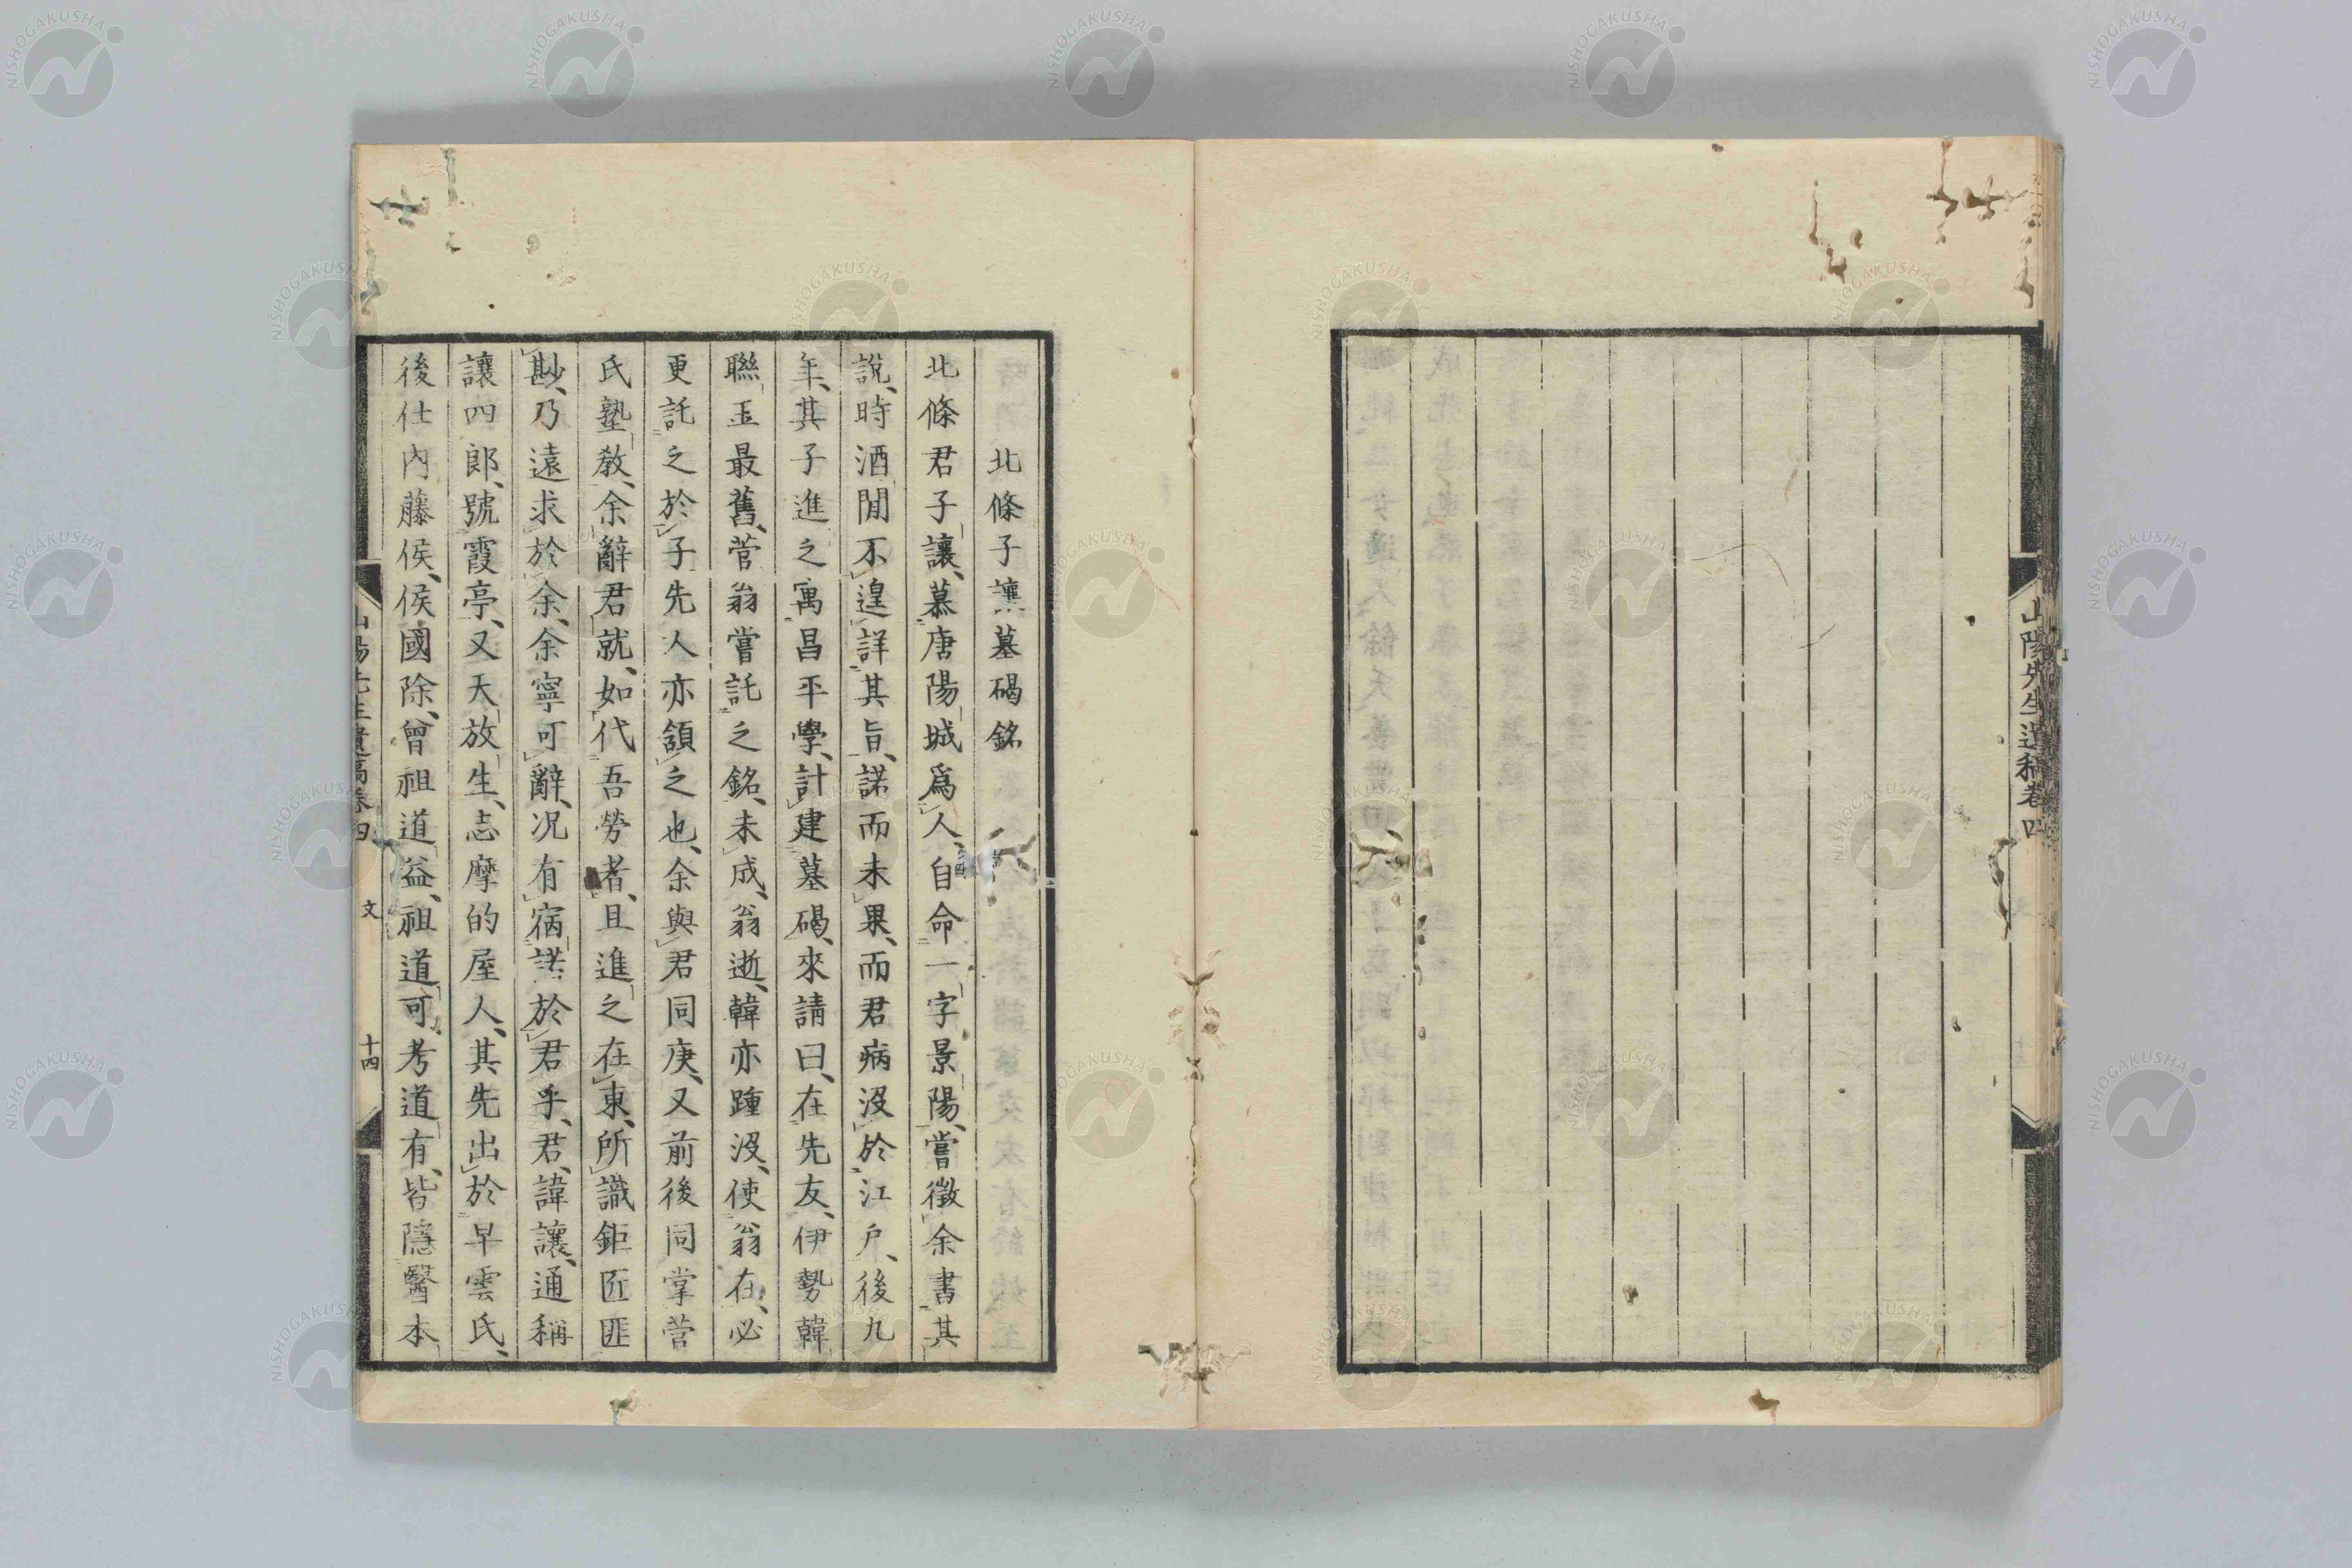 山陽先生遺稿卷四
北條子讓墓碣銘
北條君子讓、慕唐陽城爲人、自命一字景陽、嘗徵余書其
說、時酒間不遑詳其旨、諾而未果、而君病沒於江戶、後九
年、其子進之寓昌平學、計建墓碣、來請曰、在先友、伊勢韓
聯玉最舊、菅翁嘗託之銘、未成、翁逝、韓亦踵沒、使翁在、必
更託之於子先人亦頷之也、余與君同庚、又前後同掌菅
氏塾敎、余辭君就、如代吾勞者、且進之在東、所識鉅匠匪
尠、乃遠求於余、余寧可辭、况有宿諾於君乎、君諱讓、通稱
讓四郎、號霞亭、又天放生、志摩的屋人、其先出於早雲氏、
後仕內藤侯、侯國除、曾祖道益、祖道可、考道有、皆隱醫本
山陽先生遺稿卷四 文 十四
NISHOGAKUSHA